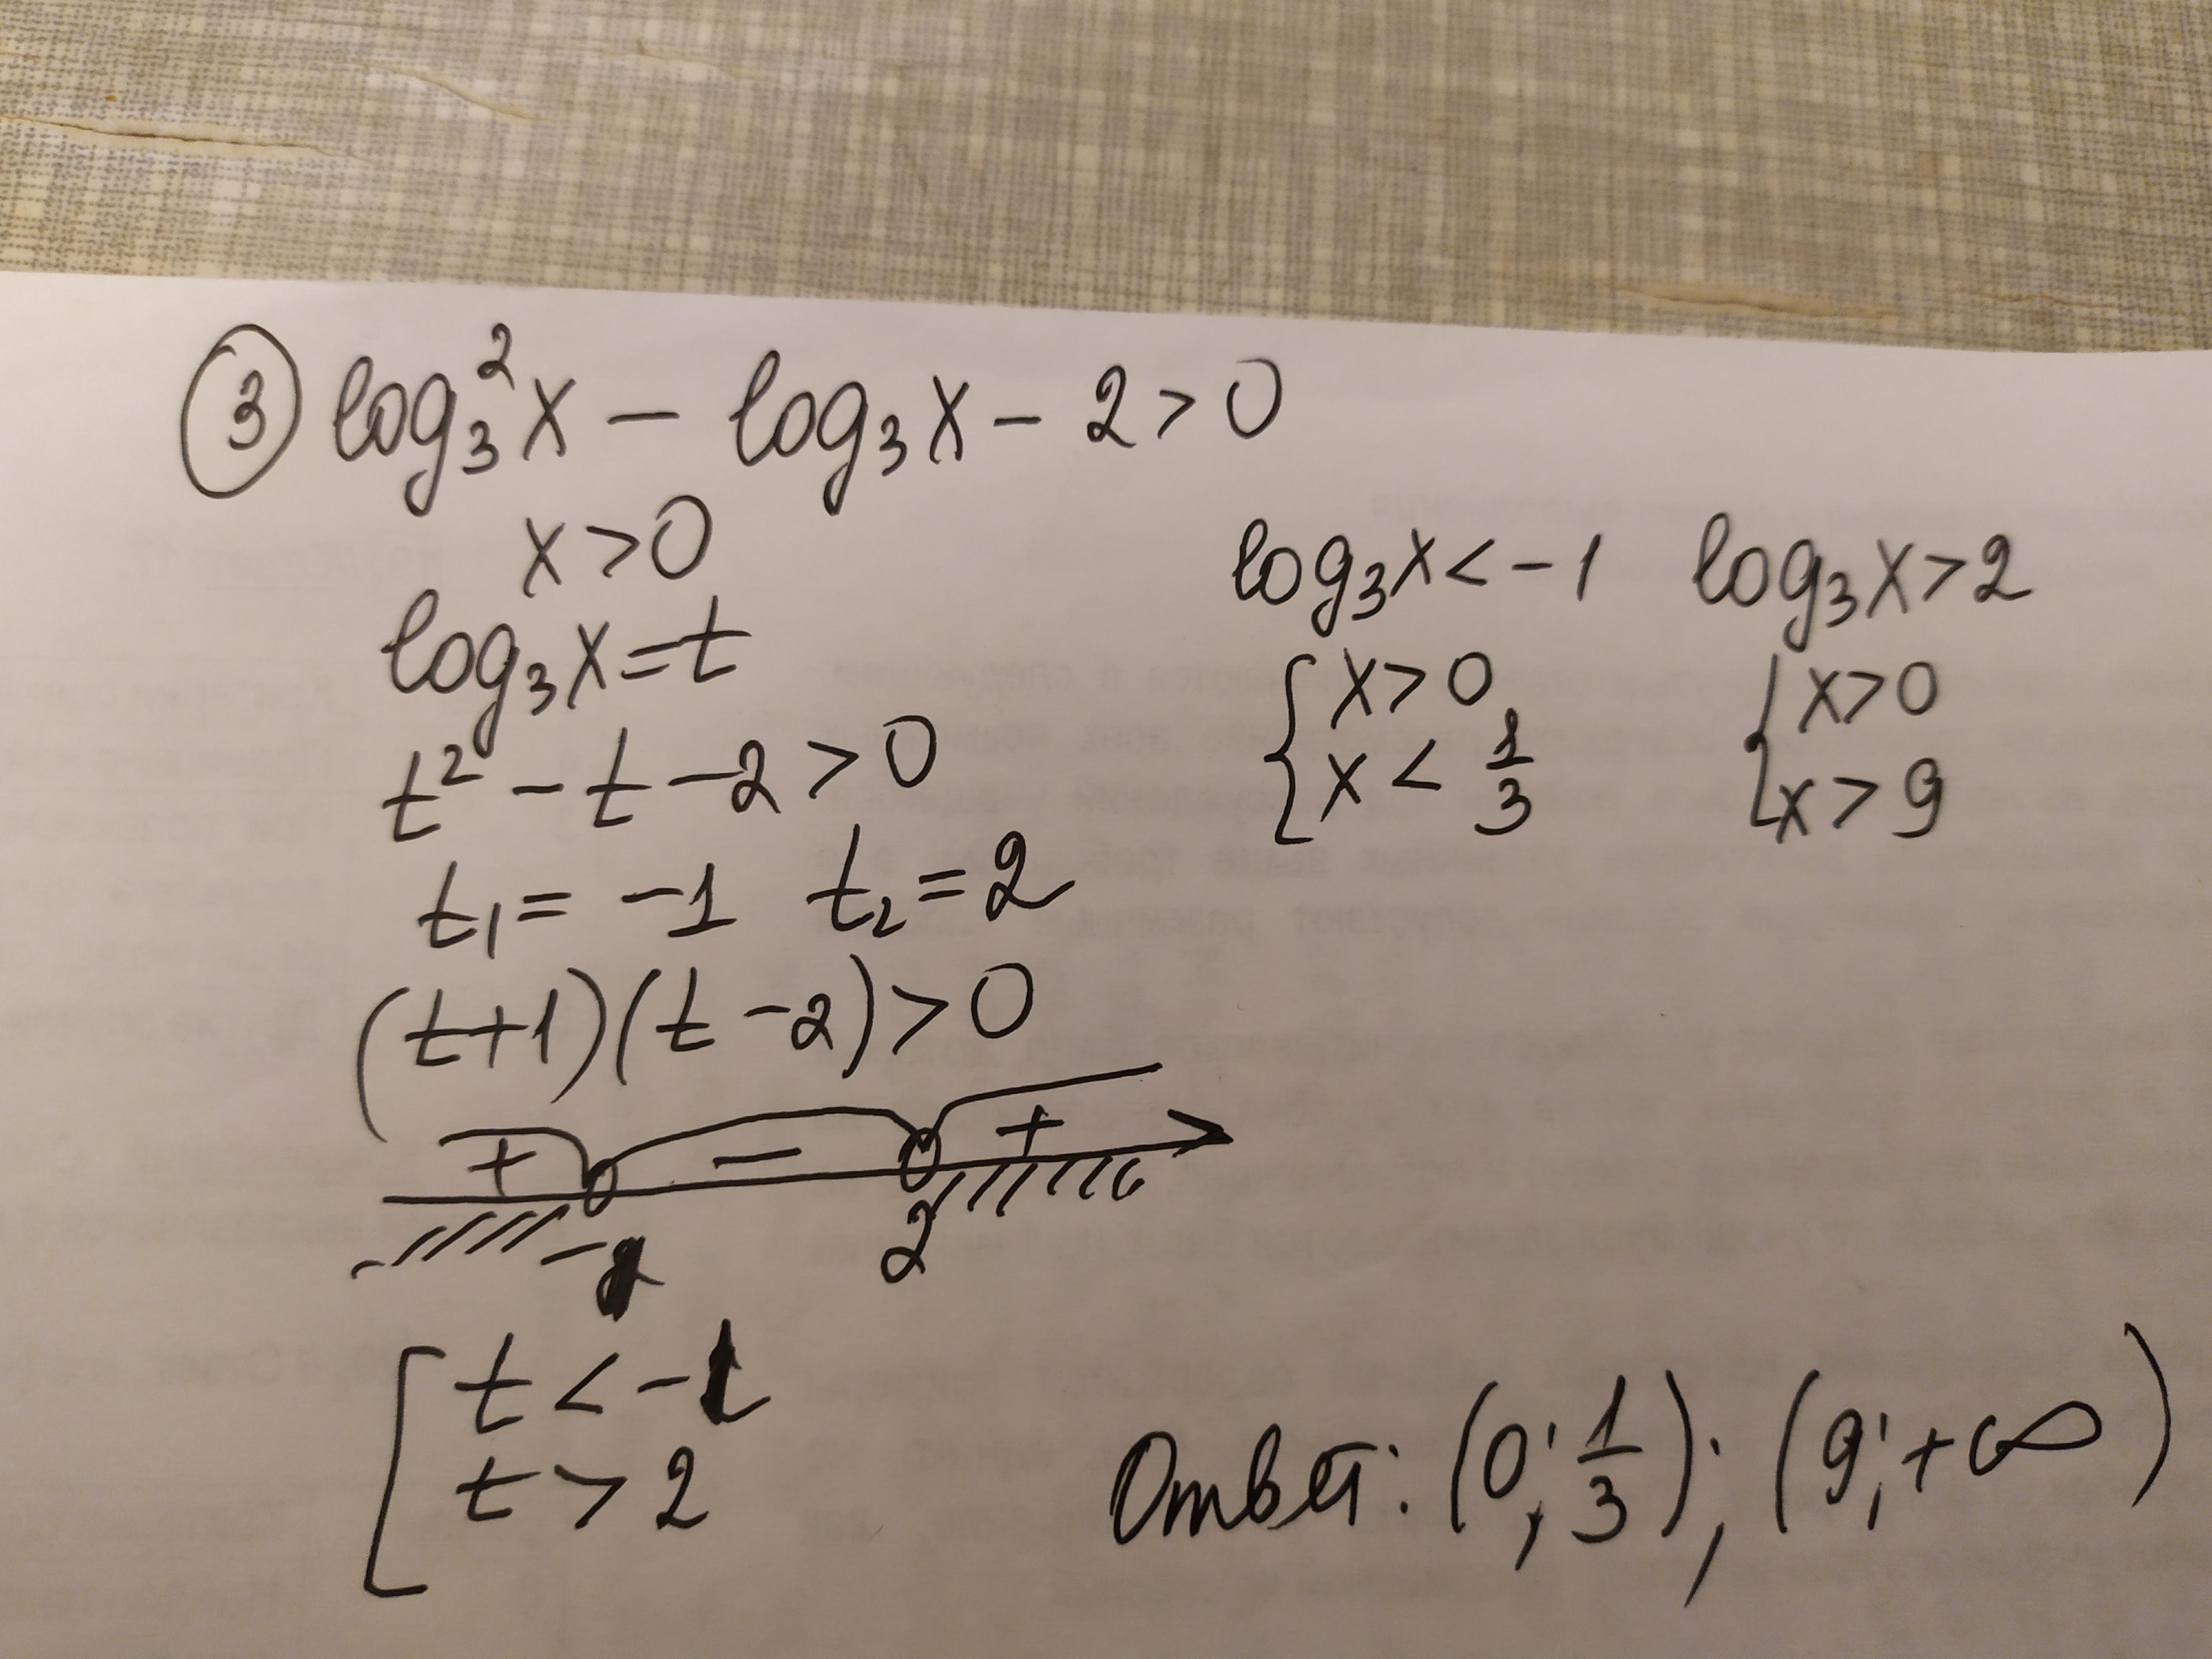 ③ log₃²x – log₃x – 2 > 0
x > 0
log₃x = t
t² – t – 2 > 0
t₁ = –1 t₂ = 2
(t+1)(t–2) > 0
+ – +
–1 2
[ t < –1
t > 2
log₃x < –1 log₃x > 2
{ x > 0 { x > 0
x < 1/3 x > 9
Ответ: (0; 1/3); (9; +∞)